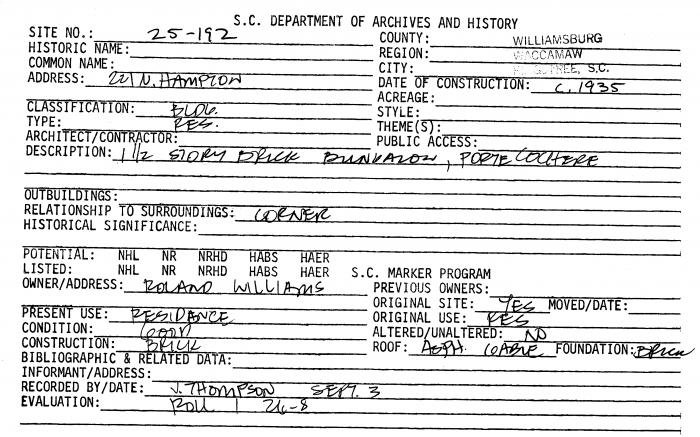 S.C. DEPARTMENT OF ARCHIVES AND HISTORY
SITE NO.: 25-192 COUNTY: WILLIAMSBURG
HISTORIC NAME: REGION: WACCAMAW
COMMON NAME: CITY: KINGSTREE, S.C.
ADDRESS: 221 N. HAMPTON DATE OF CONSTRUCTION: C. 1935
ACREAGE:
CLASSIFICATION: BLDG. STYLE:
TYPE: RES. THEME(S):
ARCHITECT/CONTRACTOR: PUBLIC ACCESS:
DESCRIPTION: 1 1/2 STORY BRICK BUNKALOW, PORTE COCHERE
OUTBUILDINGS:
RELATIONSHIP TO SURROUNDINGS: CORNER
HISTORICAL SIGNIFICANCE:
POTENTIAL: NHL NR NRHD HABS HAER
LISTED: NHL NR NRHD HABS HAER S.C. MARKER PROGRAM
OWNER/ADDRESS: ROLAND WILLIAMS PREVIOUS OWNERS:
ORIGINAL SITE: YES MOVED/DATE:
PRESENT USE: RESIDANCE ORIGINAL USE: RES
CONDITION: GOOD ALTERED/UNALTERED: NO
CONSTRUCTION: BRICK ROOF: ASPH. GABLE FOUNDATION: BRICK
BIBLIOGRAPHIC & RELATED DATA:
INFORMANT/ADDRESS:
RECORDED BY/DATE: J. THOMPSON SEPT. 3
EVALUATION: ROLL 1 26-8